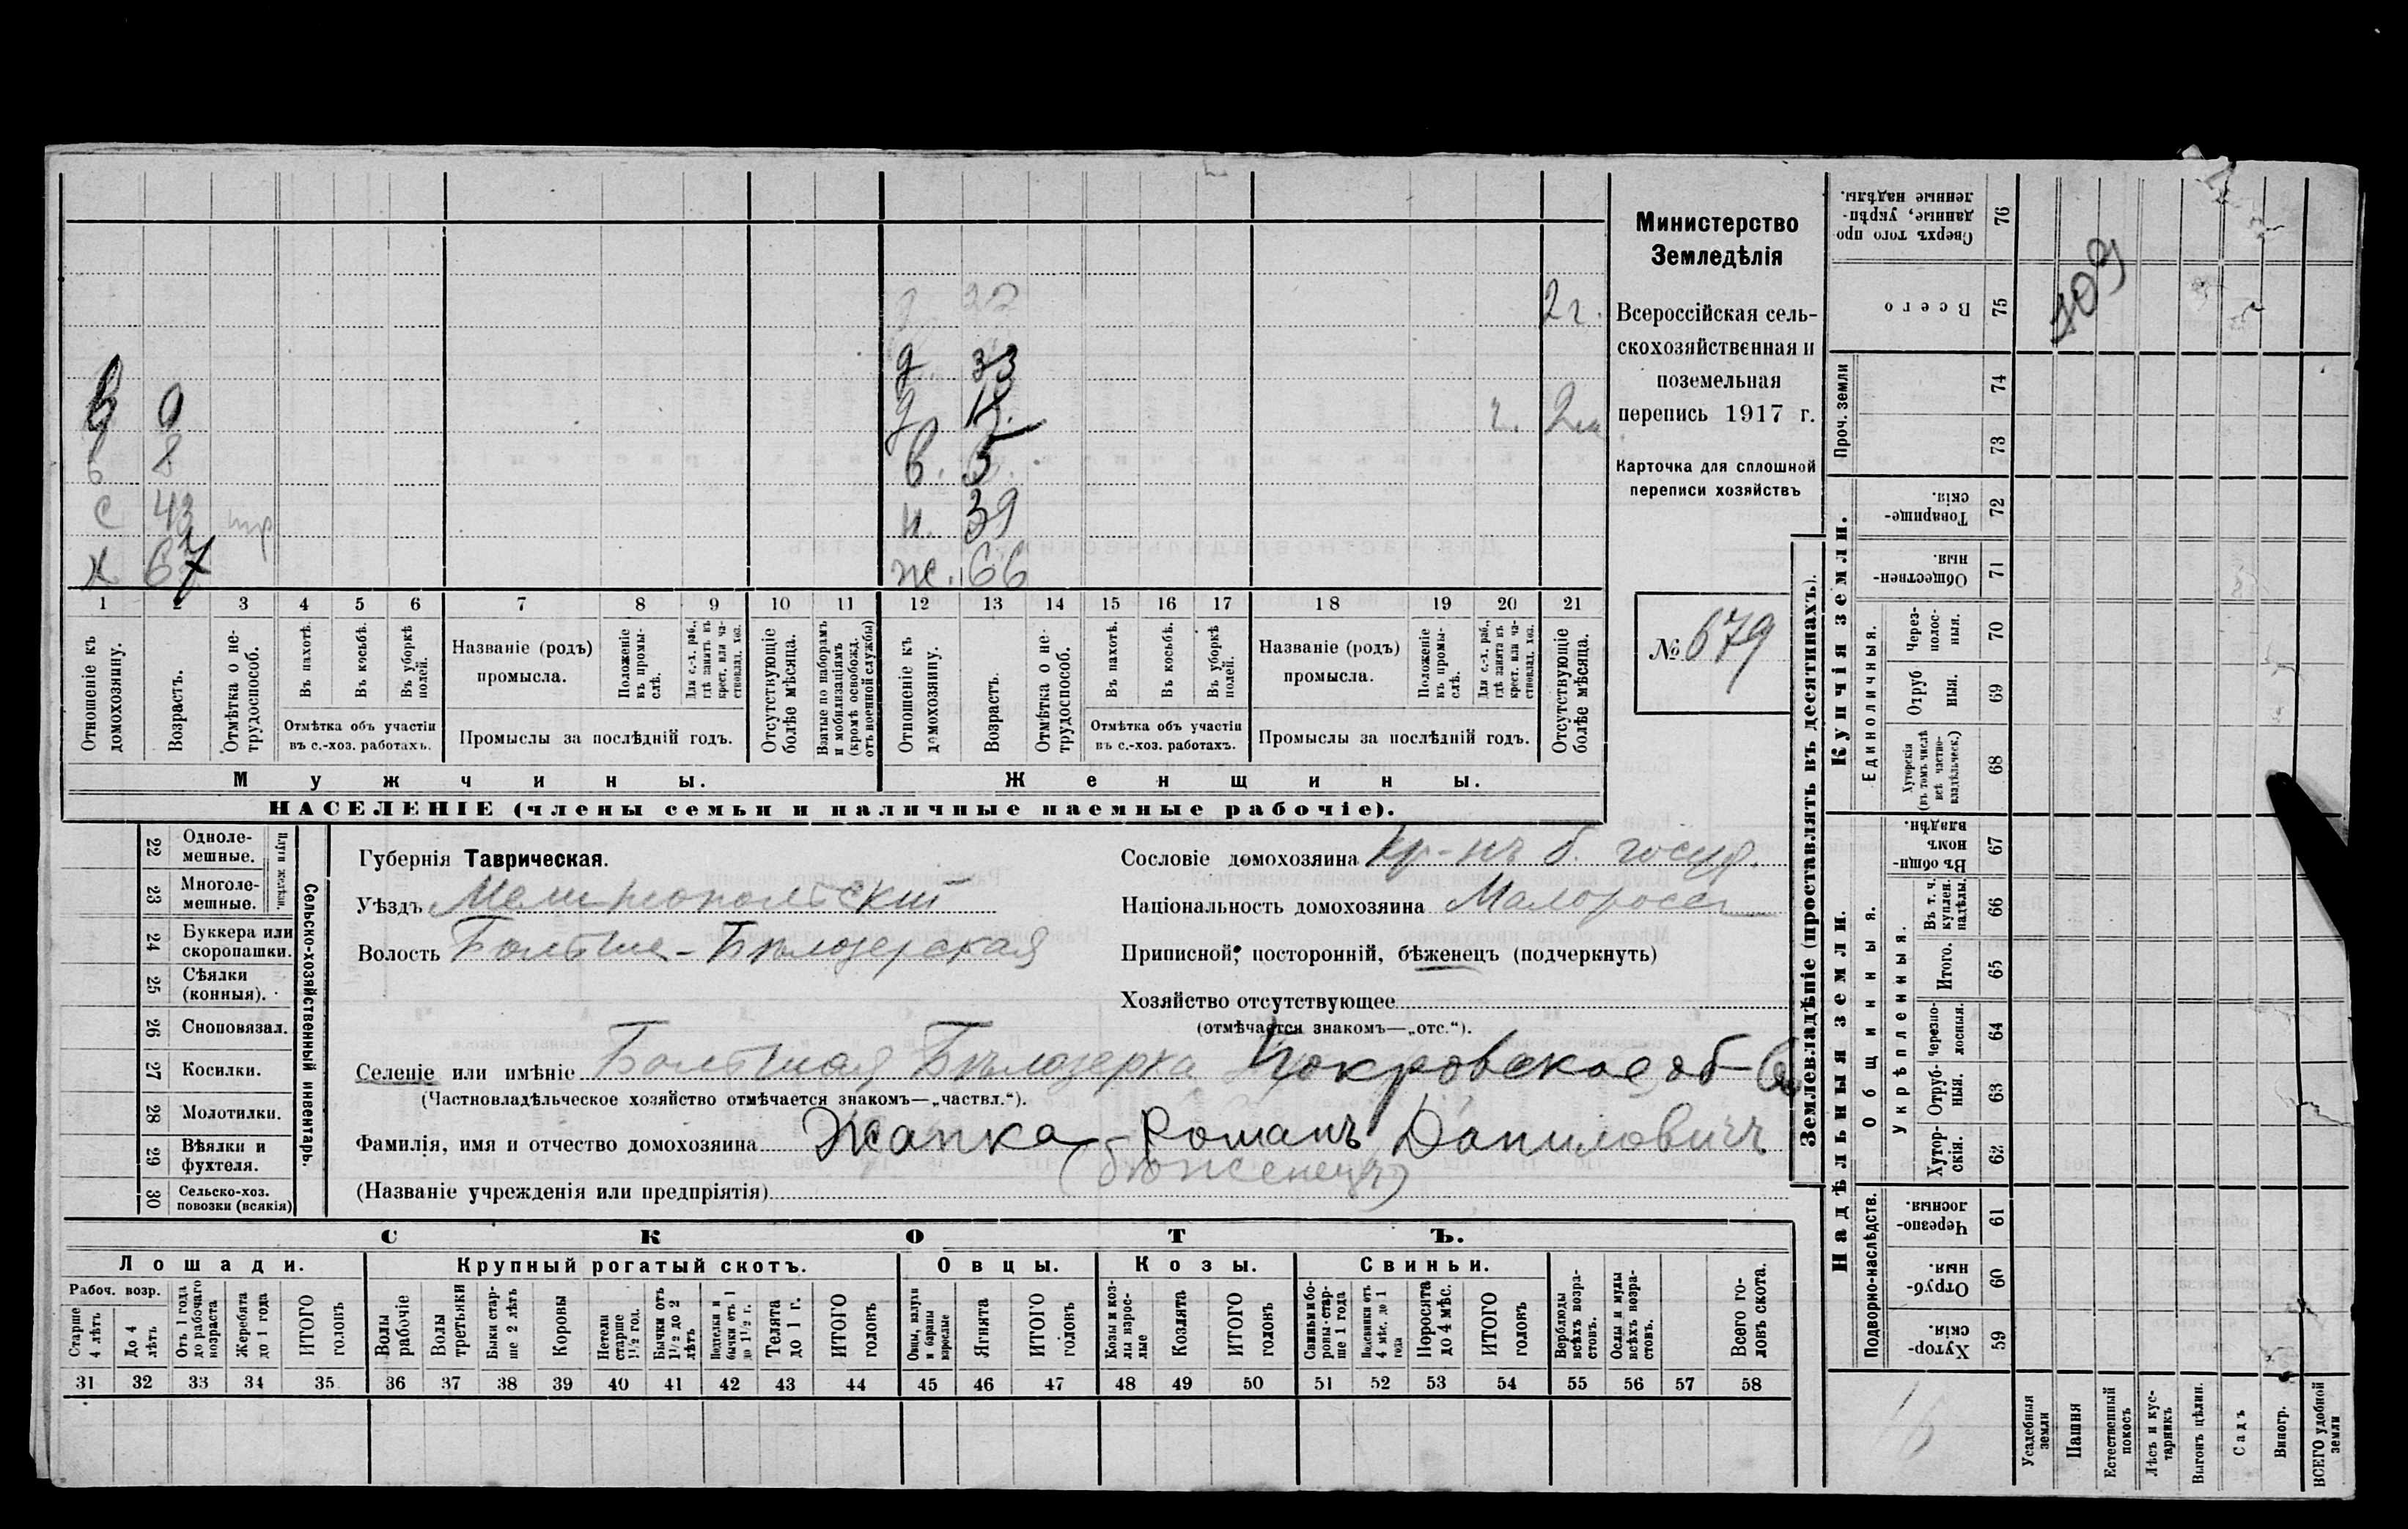 Министерство
Земледѣлія
Всероссійская сель-
скохозяйственная и
поземельная
перепись 1917 г.
Карточка для сплошной
переписи хозяйствъ
№ 679
2 г.
д. 33
д.
в 8 в.
с 43 н. 39
х 67 ж. 66
1 2 3 4 5 6 7 8 9 10 11 12 13 14 15 16 17 18 19 20 21
Отношеніе къ домохозяину.
Возрастъ.
Отмѣтка о не-трудоспособ.
Въ пахотѣ.
Въ косьбѣ.
Въ уборкѣ полей.
Отмѣтка объ участіи
въ с.-хоз. работахъ.
Названіе (родъ)
промысла.
Положеніе въ промы-слѣ.
Для с.-х. раб., гдѣ занятъ въ крест. или ча-стновлад. хоз.
Промыслы за послѣдній годъ.
Отсутствующіе болѣе мѣсяца.
Взятые по наборамъ и мобилизаціямъ (кромѣ освобожд. отъ военной службы)
Отношеніе къ домохозяину.
Возрастъ.
Отмѣтка о не-трудоспособ.
Въ пахотѣ.
Въ косьбѣ.
Въ уборкѣ полей.
Отмѣтка объ участіи
въ с.-хоз. работахъ.
Названіе (родъ)
промысла.
Положеніе въ промы-слѣ.
Для с.-х. раб., гдѣ занята въ крест. или ча-стновлад. хоз.
Промыслы за послѣдній годъ.
Отсутствующіе болѣе мѣсяца.
Мужчины.
Женщины.
НАСЕЛЕНІЕ (члены семьи и наличные наемные рабочіе).
22 Одноле-мешные.
23 Многоле-мешные.
Плуги желѣзн.
24 Буккера или скоропашки.
25 Сѣялки (конныя).
26 Сноповязал.
27 Косилки.
28 Молотилки.
29 Вѣялки и фухтеля.
30 Сельско-хоз. повозки (всякія)
Сельско-хозяйственный инвентарь.
Губернія Таврическая.
Уѣздъ Мелитопольскій
Волость Больше-Бѣлозерская
Сословіе домохозяина кр-нъ б. госуд.
Національность домохозяина Малороссъ
Приписной, посторонній, бѣженецъ (подчеркнуть)
Хозяйство отсутствующее
(отмѣчается знакомъ—„отс.“).
Селеніе или имѣніе Большая Бѣлозерка Покровское об-во
(Частновладѣльческое хозяйство отмѣчается знакомъ—„частвл.“).
Фамилія, имя и отчество домохозяина Жапка Романъ Даниловичъ
(бѣженецъ)
(Названіе учрежденія или предпріятія)
СКОТЪ.
Лошади. Крупный рогатый скотъ. Овцы. Козы. Свиньи.
Рабоч. возр.
Старше 4 лѣтъ
До 4 лѣтъ
Отъ 1 года до рабочаго возраста
Жеребята до 1 года
ИТОГО головъ
Волы рабочіе
Волы третьяки
Быки стар-ше 2 лѣтъ
Коровы
Нетели старше 1½ год.
Бычки отъ 1½ до 2 лѣтъ
Подтелки и бычки отъ 1 до 1½ г.
Телята до 1 г.
ИТОГО головъ
Овцы, валухи и бараны взрослые
Ягнята
ИТОГО головъ
Козы и коз-лы взрос-лые
Козлята
ИТОГО головъ
Свиньи и бо-ровы стар-ше 1 года
Подсвинки отъ 4 мѣс. до 1 года
Поросята до 4 мѣс.
ИТОГО головъ
Верблюды всѣхъ возра-стовъ.
Ослы и мулы всѣхъ возра-стовъ.
Всего го-ловъ скота.
31 32 33 34 35 36 37 38 39 40 41 42 43 44 45 46 47 48 49 50 51 52 53 54 55 56 57 58
Землевладѣніе (проставлять въ десятинахъ).
Надѣльныя земли.
Купчія земли.
Проч. земли
Подворно-наслѣдств.
Общинныя.
Укрѣпленныя.
Единоличныя.
Сверхъ того про-данные, укрѣп-ленные надѣлы. 76
Всего 75
74
73
Товарище-скія. 72
Обществен-ныя. 71
Через-полос-ныя. 70
Отруб-ныя. 69
Хуторскія (въ томъ числѣ всѣ частно-владѣльческ.) 68
Въ общин-номъ владѣн. 67
Въ т. ч. куплен. надѣлы. 66
Итого. 65
Черезпо-лосныя. 64
Отруб-ныя. 63
Хутор-скія. 62
Черезпо-лосныя. 61
Отруб-ныя. 60
Хутор-скія. 59
409
Усадебныя земли
Пашня
Естественный покосъ
Лѣсъ и кус-тарникъ
Выгонъ цѣлин.
Садъ
Виногр.
ВСЕГО удобной земли